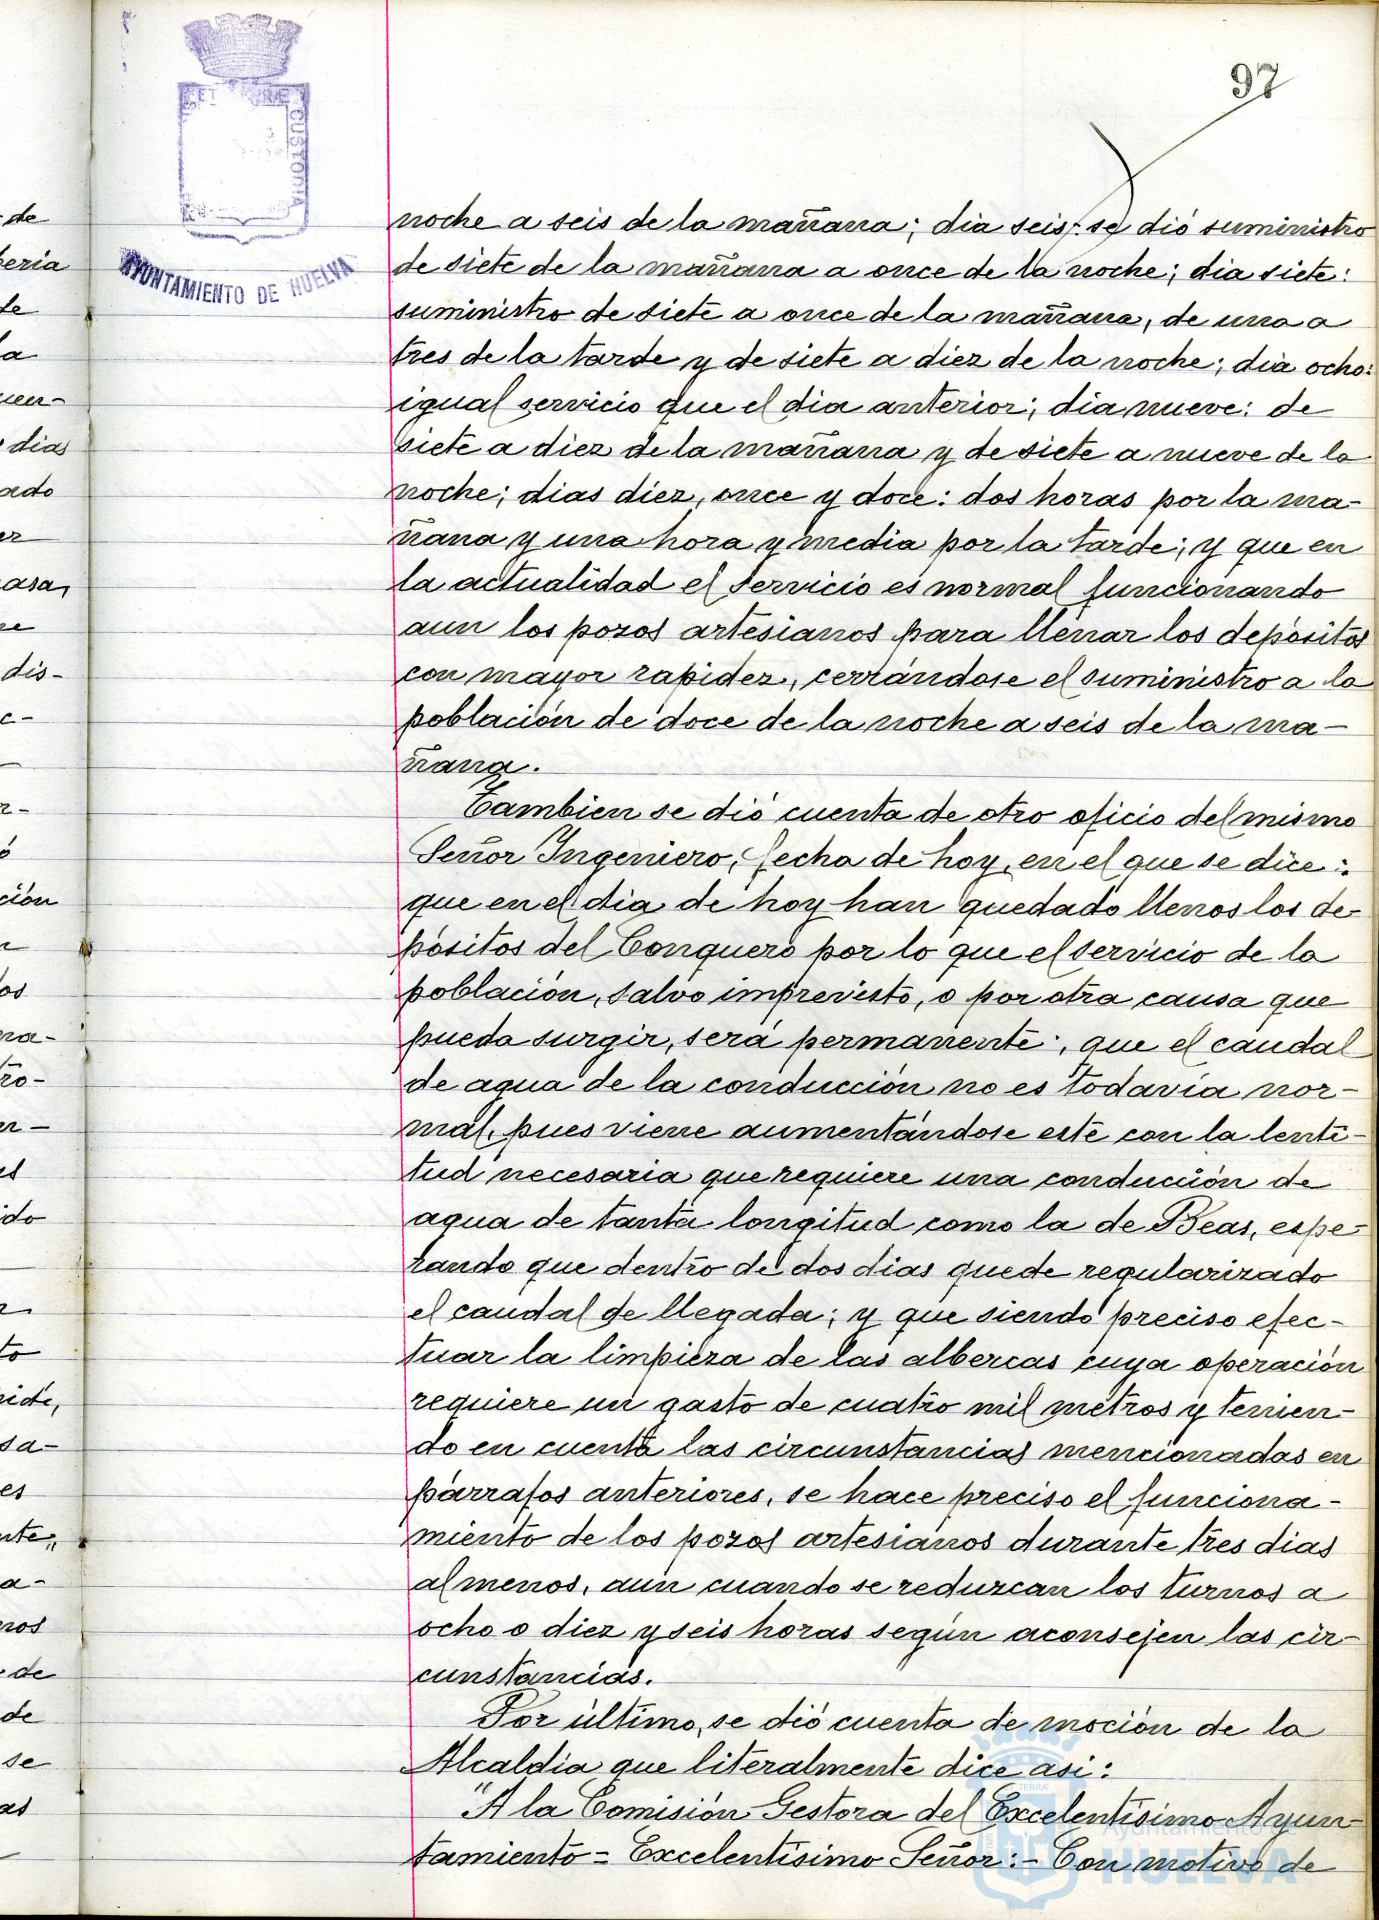 97
ET TERRÆ CUSTODIA
AYUNTAMIENTO DE HUELVA
noche a seis de la mañana; dia seis: se dió suministro
de siete de la mañana a once de la noche; dia siete:
suministro de siete a once de la mañana, de una a
tres de la tarde y de siete a diez de la noche; dia ocho:
igual servicio que el dia anterior; dia nueve: de
siete a diez de la mañana y de siete a nueve de la
noche; dias diez, once y doce: dos horas por la ma-
ñana y una hora y media por la tarde; y que en
la actualidad el servicio es normal funcionando
aun los pozos artesianos para llenar los depósitos
con mayor rapidez, cerrándose el suministro a la
población de doce de la noche a seis de la ma-
ñana.
Tambien se dió cuenta de otro oficio del mismo
Señor Ingeniero, fecha de hoy, en el que se dice:
que en el dia de hoy han quedado llenos los de-
pósitos del Conquero por lo que el servicio de la
población, salvo imprevisto, o por otra causa que
pueda surgir, será permanente; que el caudal
de agua de la conducción no es todavía nor-
mal, pues viene aumentándose este con la lenti-
tud necesaria que requiere una conducción de
agua de tanta longitud como la de Beas, espe-
rando que dentro de dos dias quede regularizado
el caudal de llegada; y que siendo preciso efec-
tuar la limpieza de las albercas cuya operación
requiere un gasto de cuatro mil metros y tenien-
do en cuenta las circunstancias mencionadas en
párrafos anteriores, se hace preciso el funciona-
miento de los pozos artesianos durante tres dias
al menos, aun cuando se reduzcan los turnos a
ocho o diez y seis horas según aconsejen las cir-
cunstancias.
Por último, se dió cuenta de moción de la
Alcaldía que literalmente dice asi:
"A la Comisión Gestora del Excelentísimo Ayun-
tamiento = Excelentísimo Señor: - Con motivo de
Ayuntamiento de
HUELVA